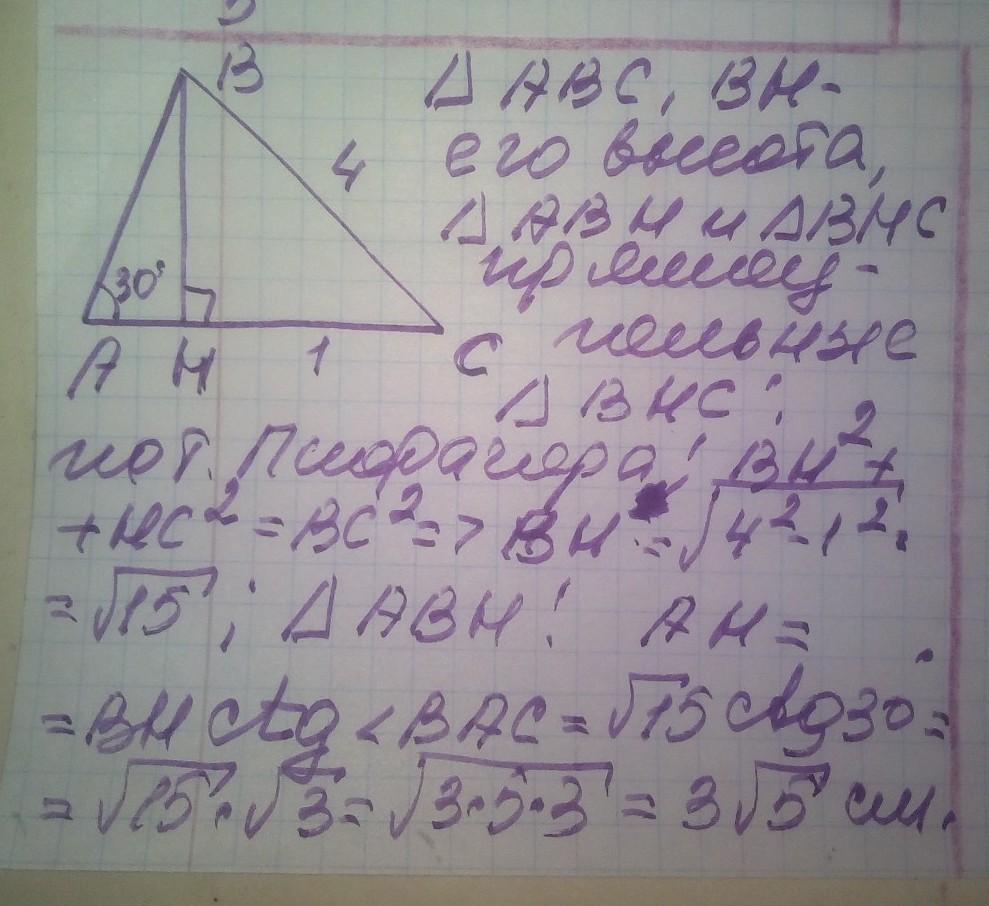 B
△ ABC, BH-
4
его высота,
△ ABH и △BHC
прямоу-
30°
гольные
A H 1 C
△ BHC:
по т. Пифагора: BH² +
+HC² = BC² => BH = √4²-1² =
= √15 ; △ ABH: AH =
= BH ctg <BAC = √15 ctg 30° =
= √15 · √3 = √3·5·3 = 3√5 см.